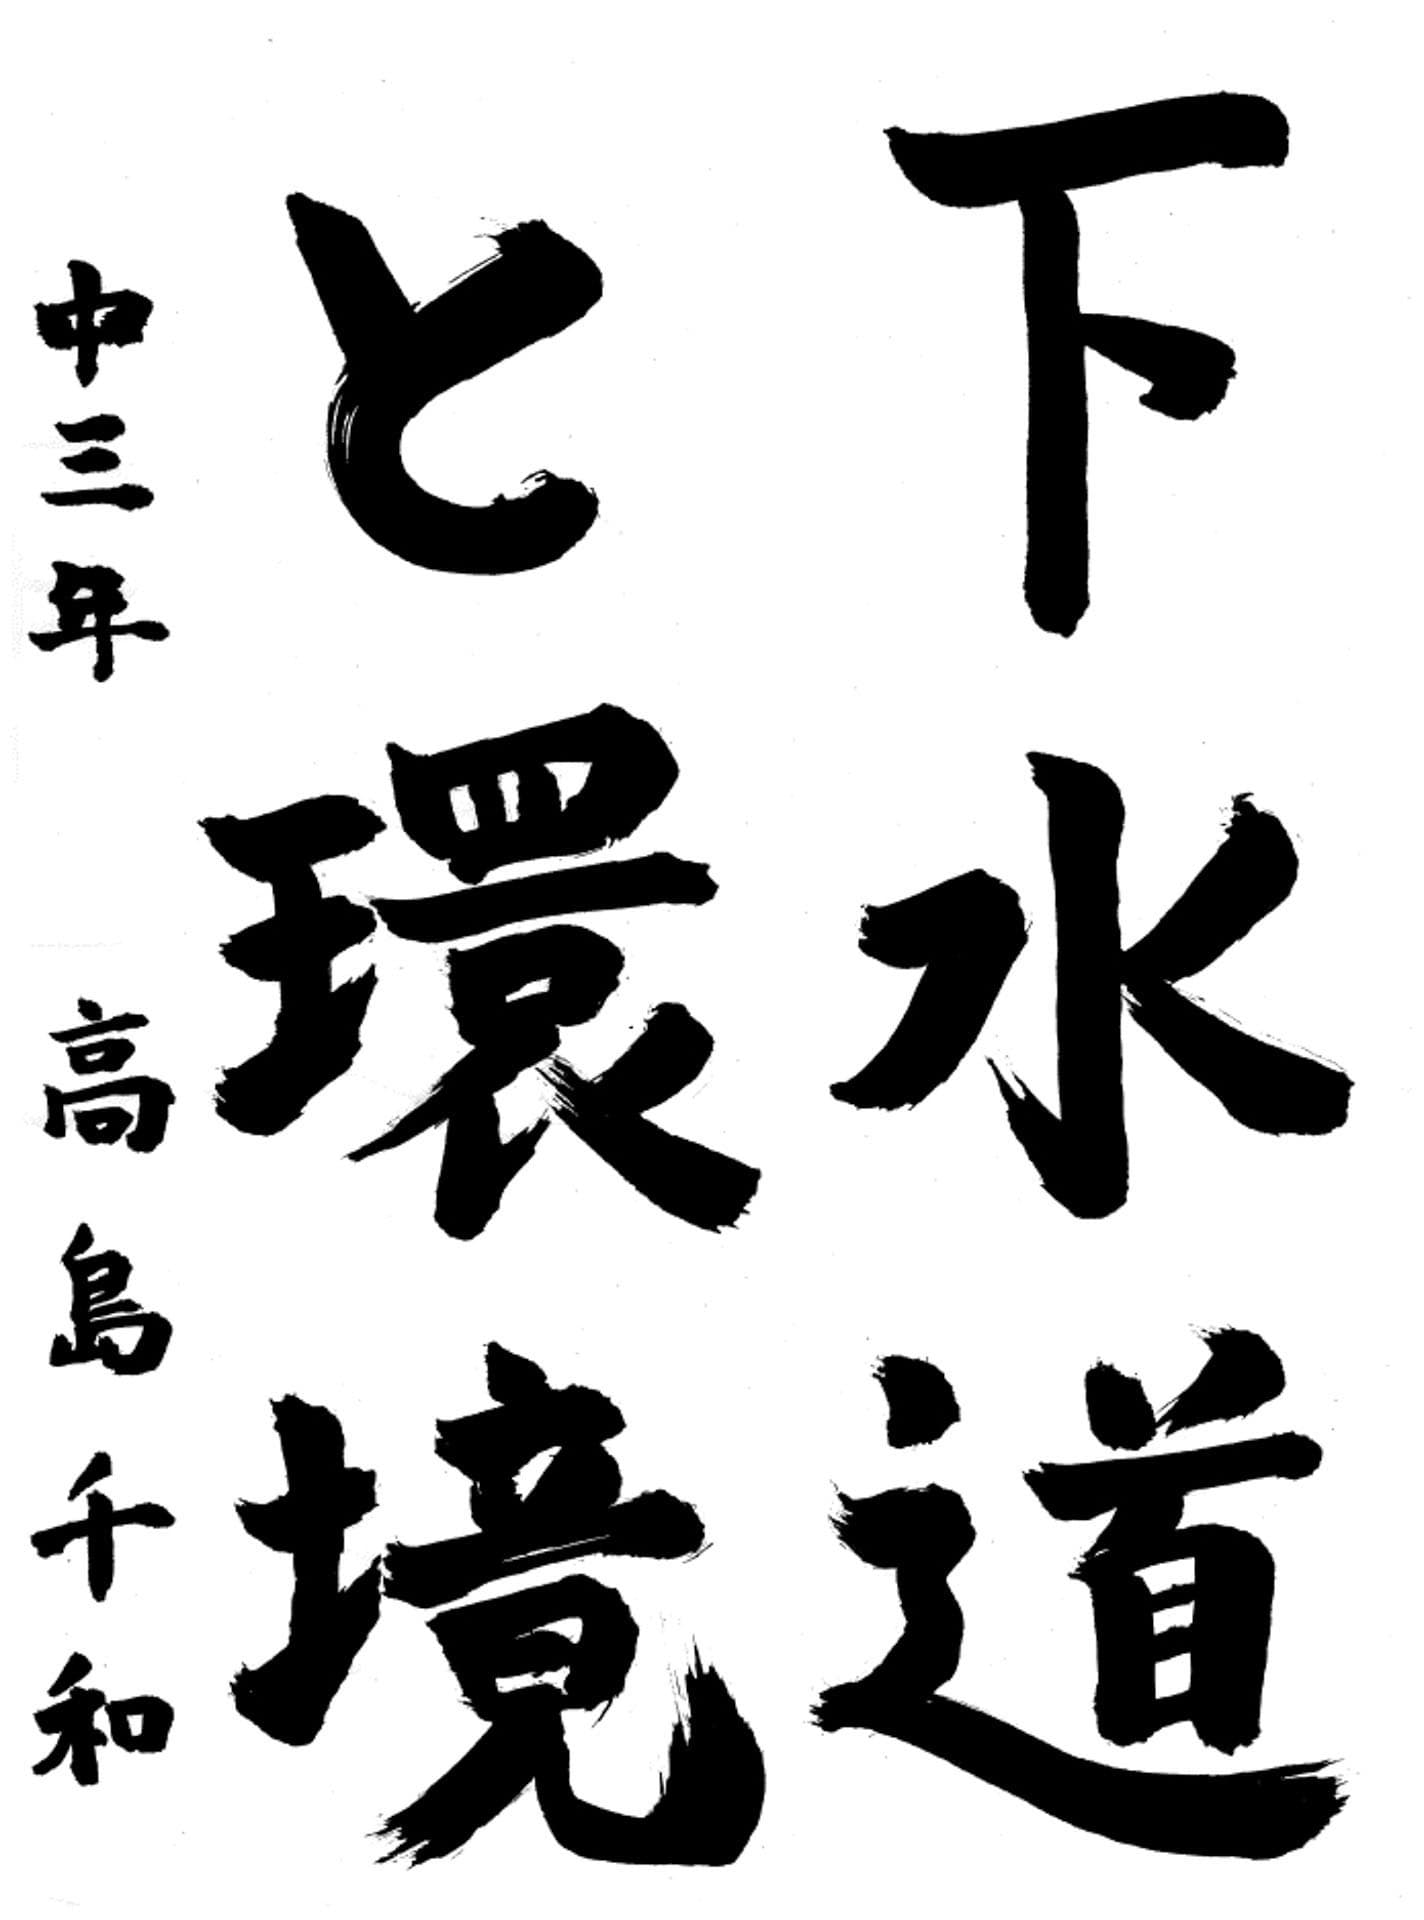 下水道
と環境
中三年 高島千和